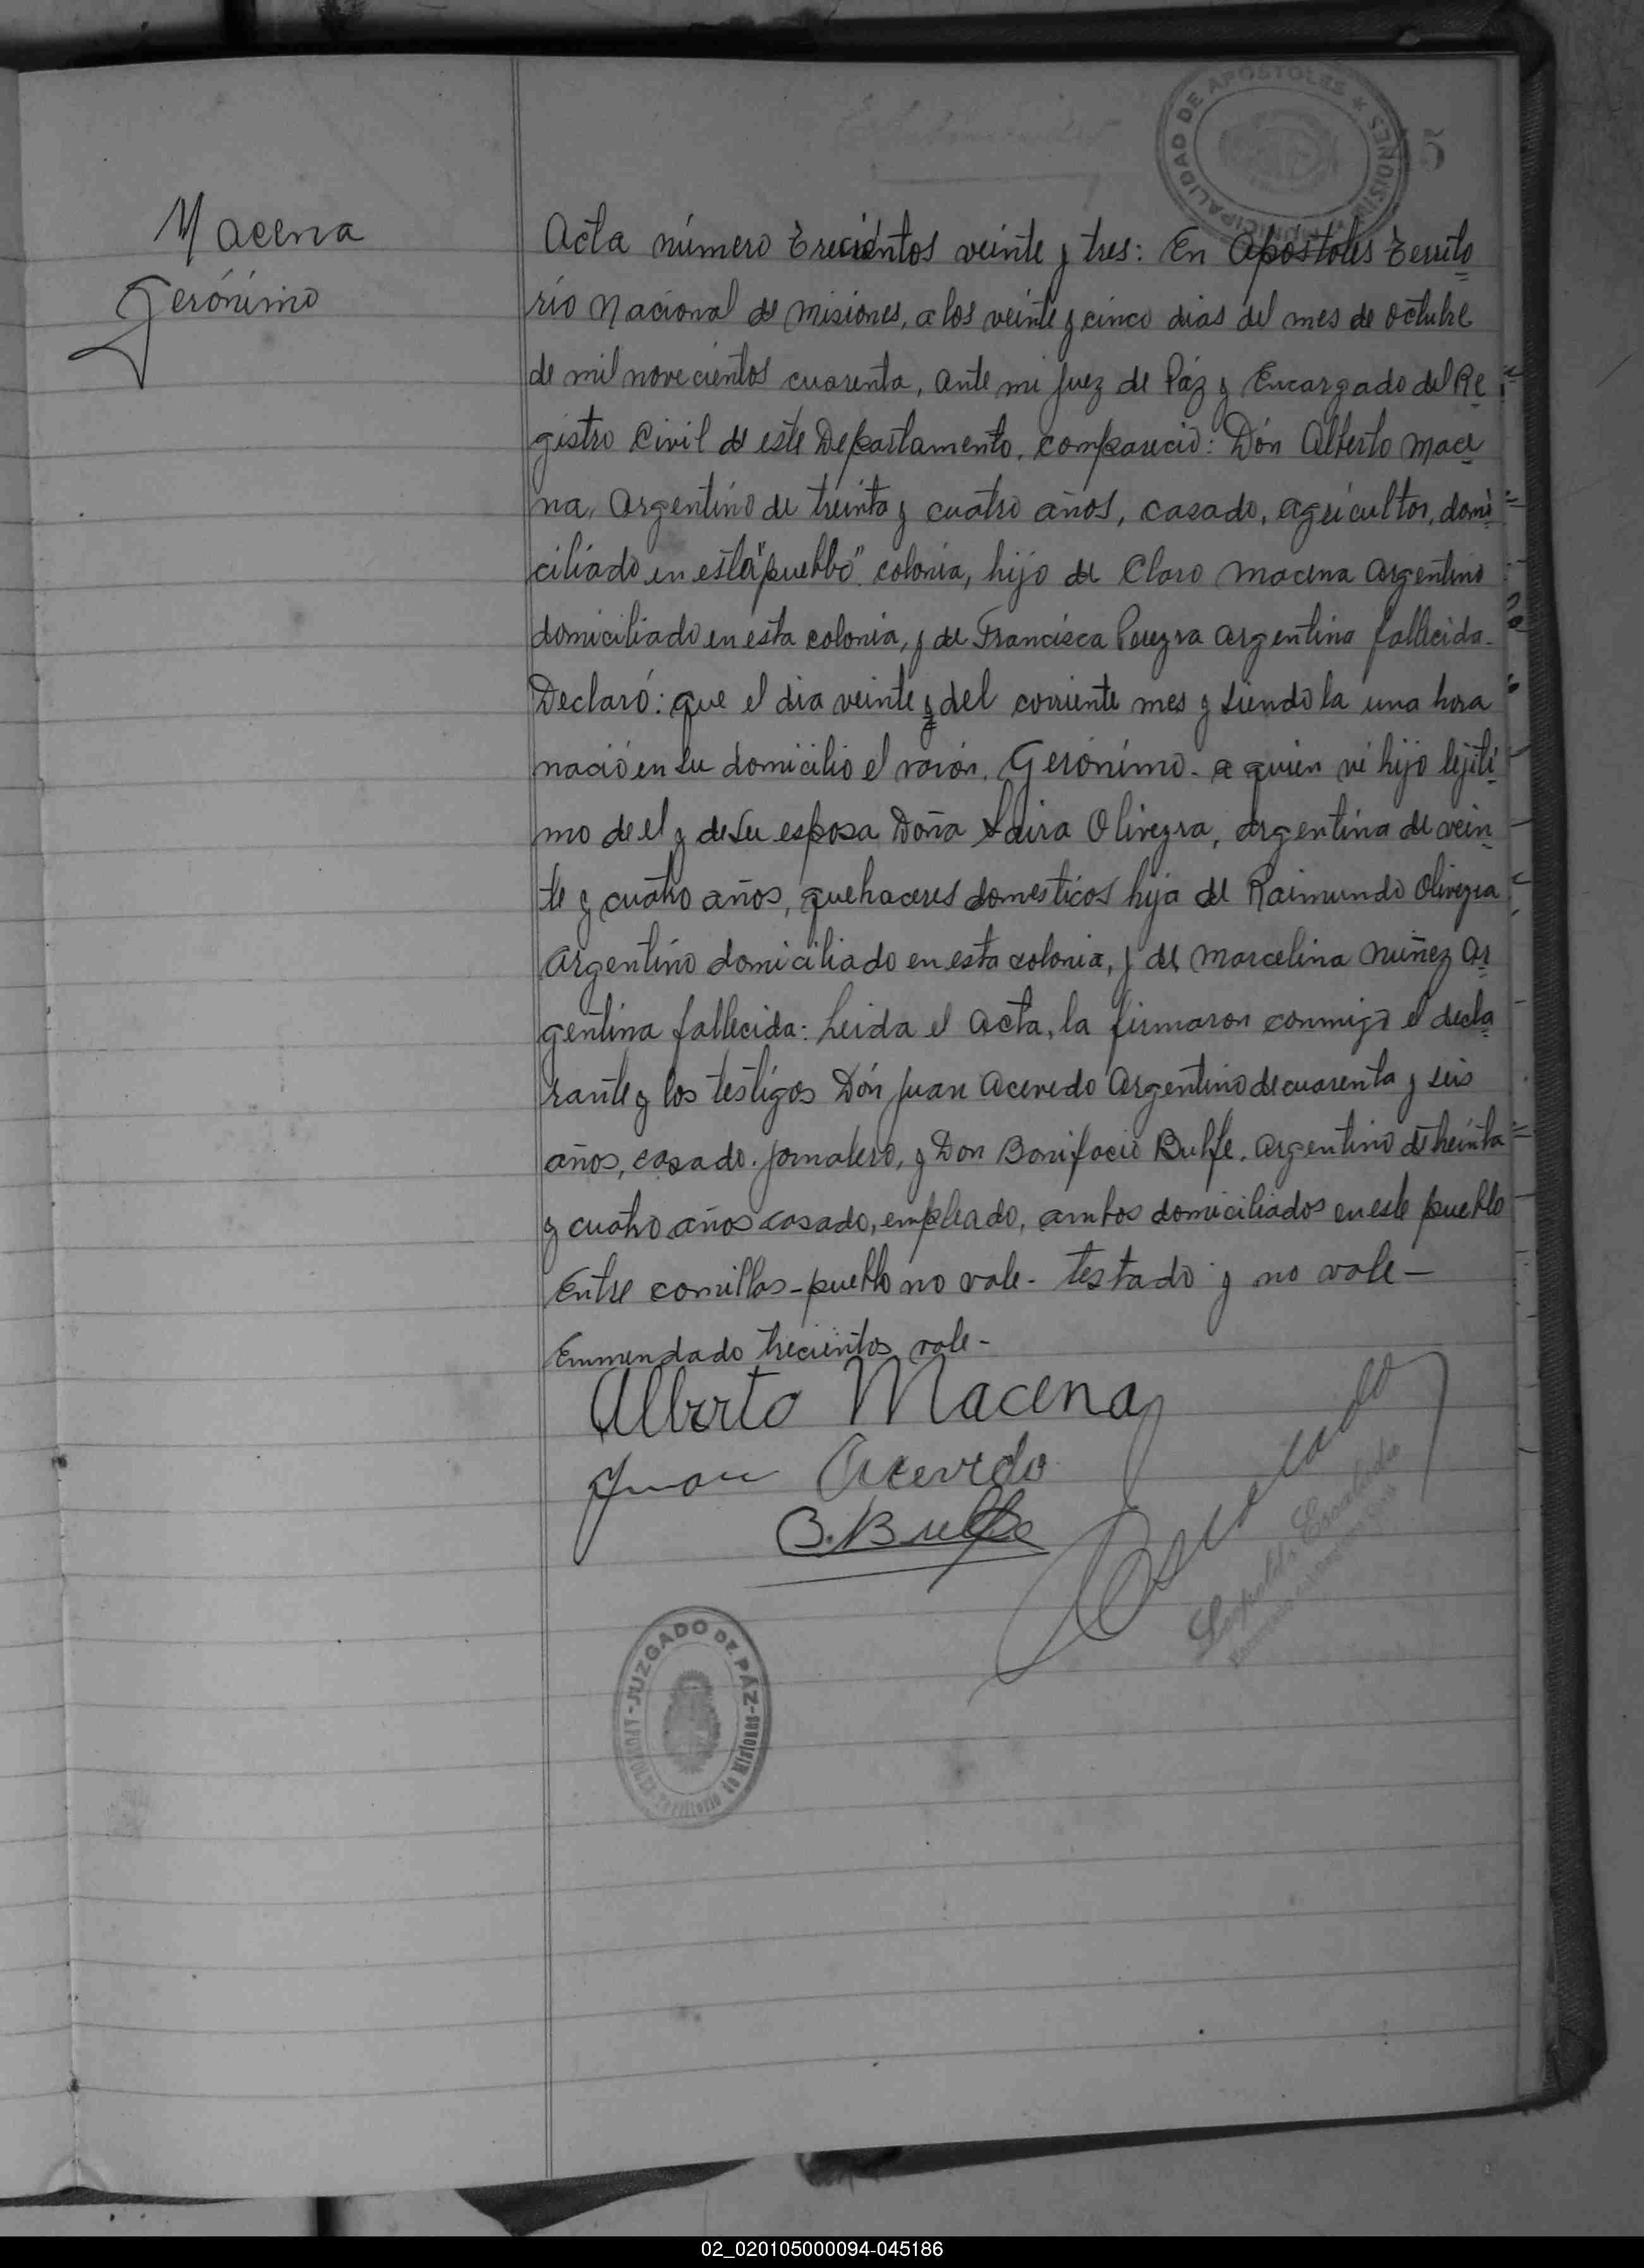 MUNICIPALIDAD DE APOSTOLES ★ MISIONES
5
Macena
Gerónimo
Acta número trecientos veinte y tres: En Apostoles Territo
rio Nacional de Misiones, a los veinte y cinco dias del mes de octubre
de mil novecientos cuarenta, ante mi Juez de Páz y Encargado del Re
gistro Civil de este Departamento, compareció: Dón Alberto Mace
na, Argentino de treinta y cuatro años, casado, agricultor, domi
ciliado en esta "pueblo" colonia, hijo de Claro Macena Argentino
domiciliado en esta colonia, y de Francisca Pereyra argentina fallecida.
Declaró: que el dia veinte y del corriente mes y siendo la una hora
nació en su domicilio el varón. Gerónimo. a quien vi hijo lejiti
mo de el y de su esposa Doña Oliveyra, argentina de vein
te y cuatro años, quehaceres domesticos hija de Raimundo Oliveyra
Argentino domiciliado en esta colonia, y de Marcelina Nuñez Ar
gentina fallecida: Leida el acta, la firmaron conmigo el decla
rante y los testigos Dón Juan Acevedo Argentino de cuarenta y seis
años, casado. jornalero, y Don Bonifacio Bulfe. Argentino de treinta
y cuatro años casado, empleado, ambos domiciliados en este pueblo
Entre comillas - pueblo no vale - testado y no vale -
Emmendado trecientos vale -
Alberto Macena
Juan Acevedo
B. Bulfe
Leopoldo Escalada
JUZGADO DE PÁZ - APOSTOLES - Territorio de Misiones
02_020105000094-045186